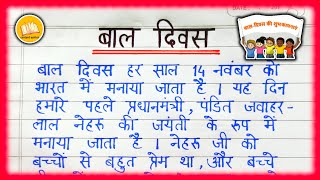 बाल दिवस की शुभकामनाएं
बाल दिवस
बाल दिवस हर साल 14 नवंबर को
भारत में मनाया जाता है । यह दिन
हमारे पहले प्रधानमंत्री, पंडित जवाहर-
लाल नेहरू की जयंती के रूप में
मनाया जाता है । नेहरू जी को
बच्चों से बहुत प्रेम था, और बच्चे